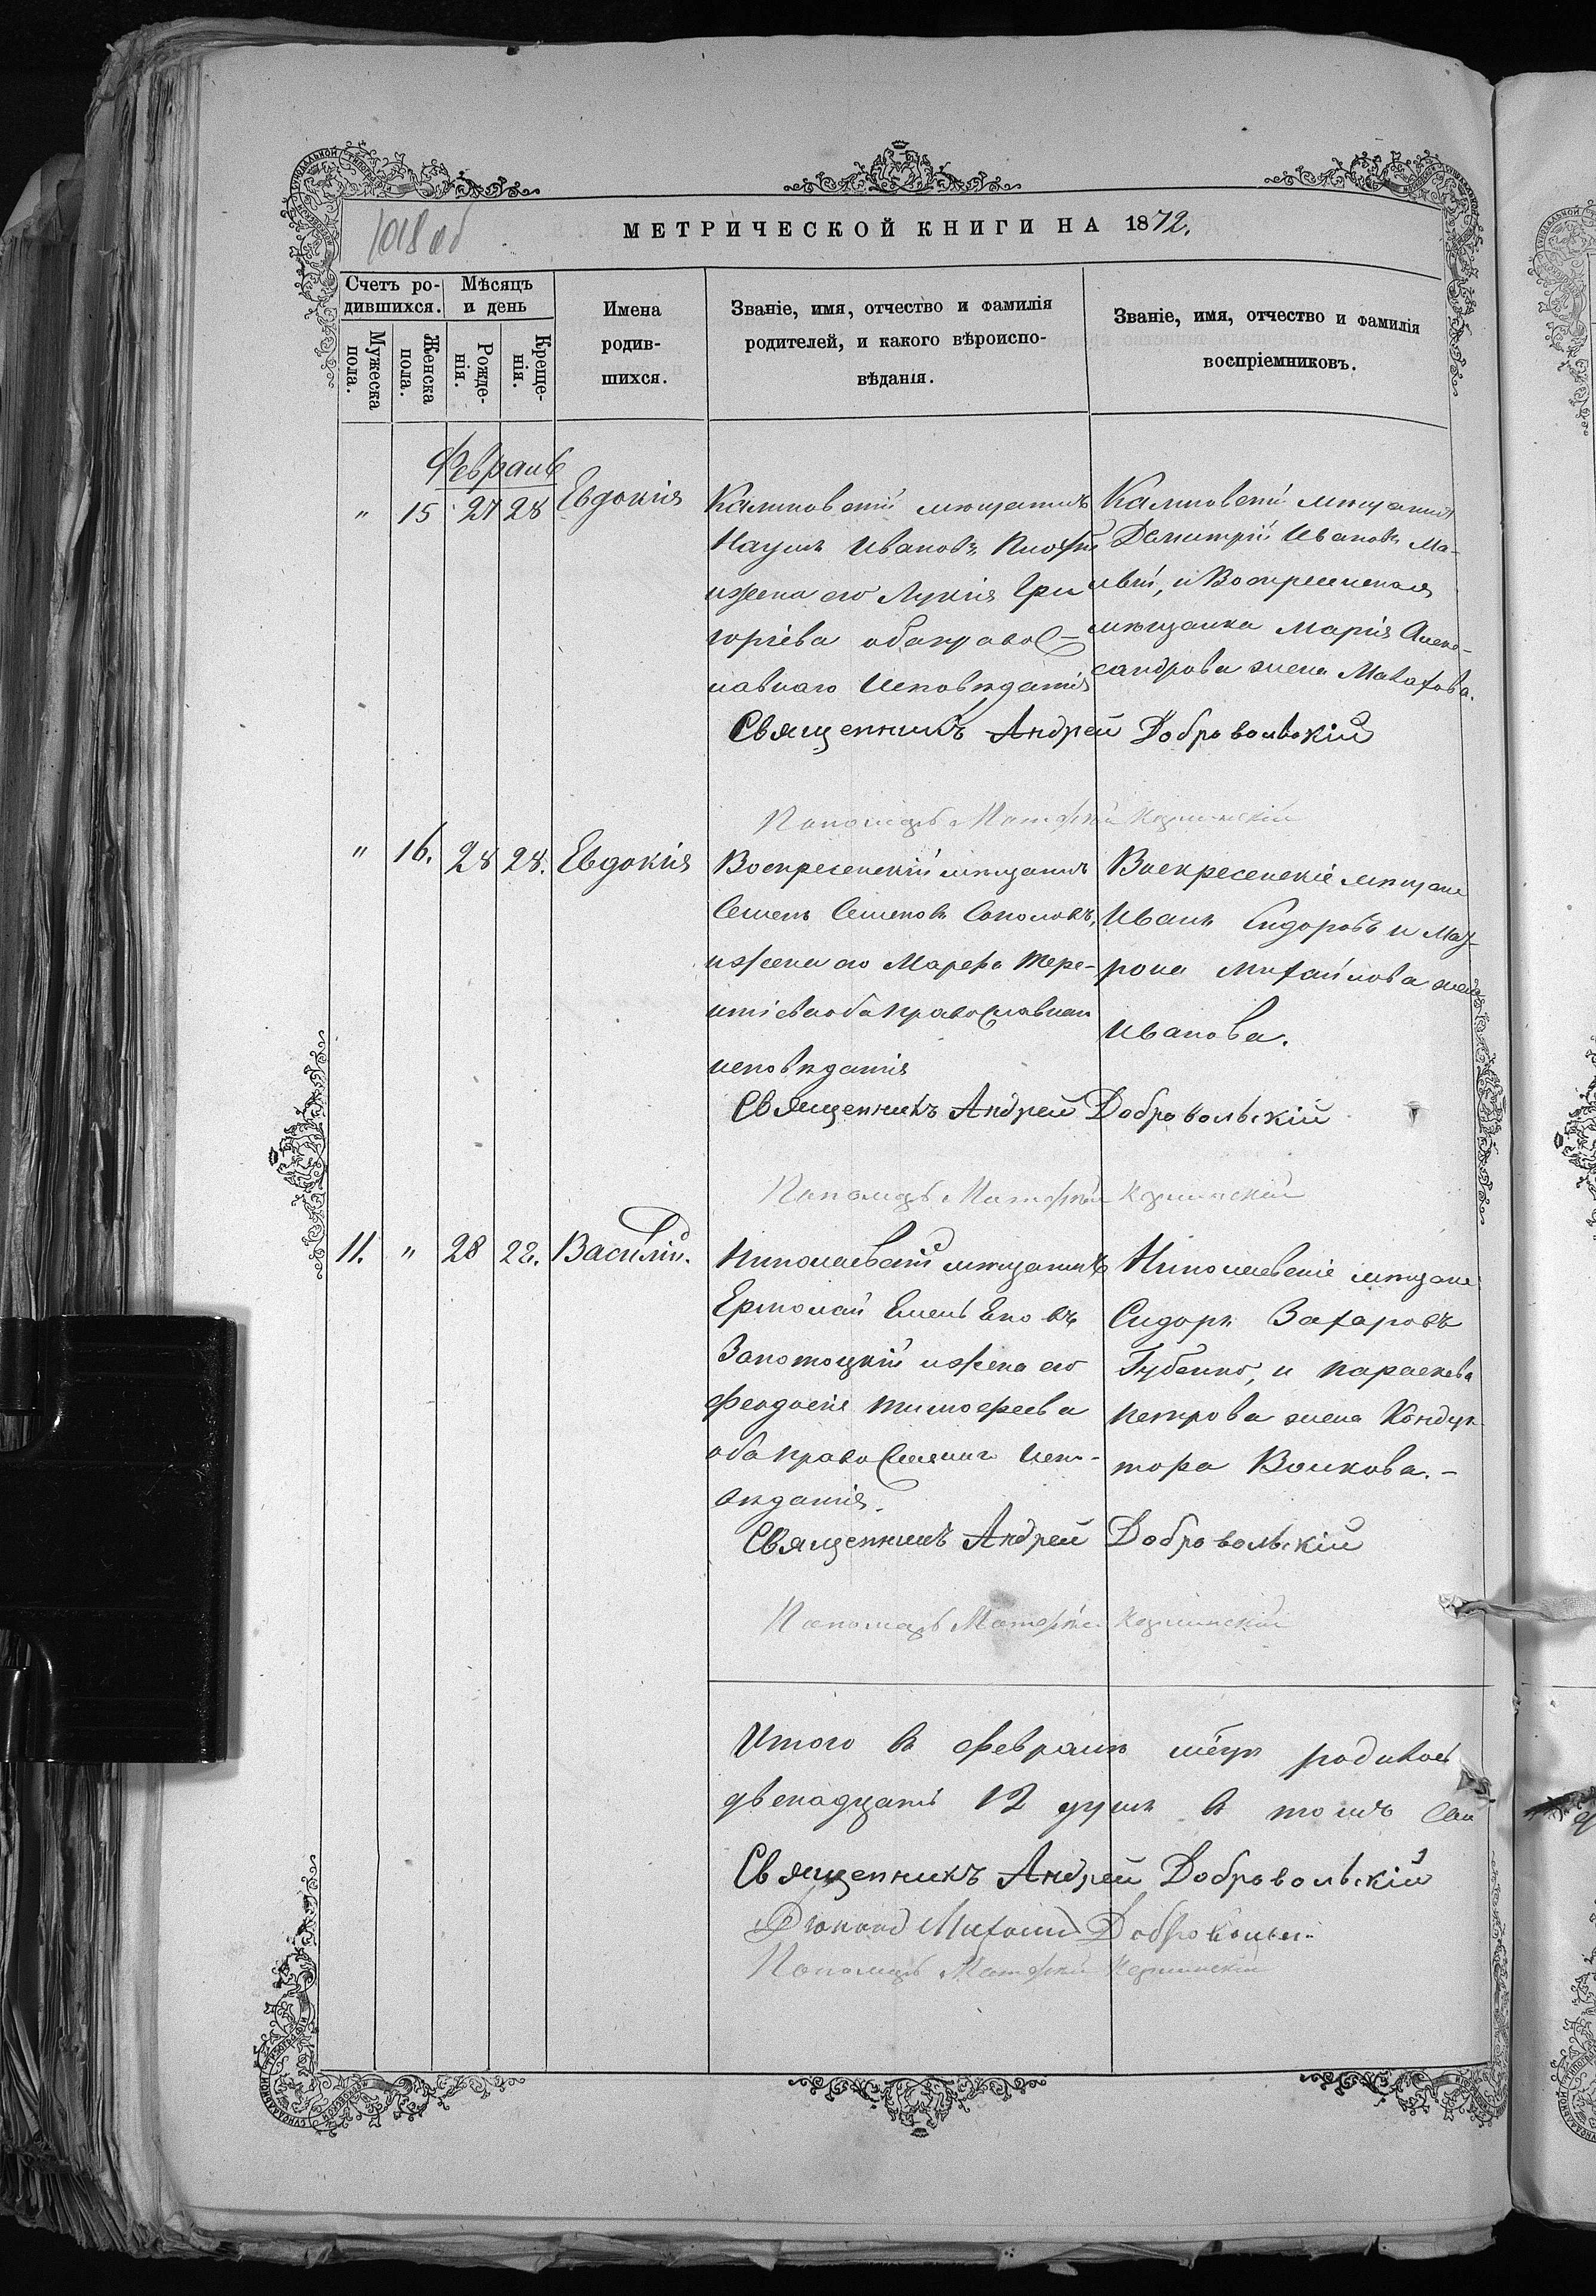 1018 об
МЕТРИЧЕСКОЙ КНИГИ НА 1872.
Счетъ ро-
дившихся.
Мѣсяцъ
и день
Мужеска
пола.
Женска
пола.
Рожде-
нія.
Креще-
нія.
Имена
родив-
шихся.
Званіе, имя, отчество и фамилія
родителей, и какого вѣроиспо-
вѣданія.
Званіе, имя, отчество и фамилія
воспріемниковъ.
Февраль
" 15 27 28 Евдокія
мѣщанинъ
Наумъ Ивановъ
и жена его Лукія Гри
горіева оба правос-
лавнаго исповѣданія
мѣщанинъ
Димитрій Ивановъ Ма-
и Воскресенская
мѣщанка Марія Алек-
сандрова жена Махатова.
Священникъ Андрей Добровольскій
Пономарь Матфей
" 16. 28 28. Евдокія
Воскресенскій мѣщанинъ
Семенъ Семеновъ Соколовъ,
и жена его Марфа Тере-
нтіева оба православнаго
исповѣданія
Воскресенскіе мѣщане
Иванъ Сидоровъ и Мат-
рона Михайлова жена
Иванова.
Священникъ Андрей Добровольскій
Пономарь Матфей
11. " 28 28. Василій.
Николаевскій мѣщанинъ
Ермолай Емельяновъ
Золотоцкій и жена его
Феодосія Тимофеева
оба православнаго испо-
вѣданія.
Николаевскіе мѣщане
Сидоръ Захаровъ
Губенко, и Параскева
Петрова жена Кондук-
тора Волкова. -
Священникъ Андрей Добровольскій
Пономарь Матфей
Итого въ февралѣ м-цѣ родилось
двенадцать 12 душъ въ томъ
Священникъ Андрей Добровольскій
Діаконъ Михаилъ Добровольск.
Пономарь Матфей